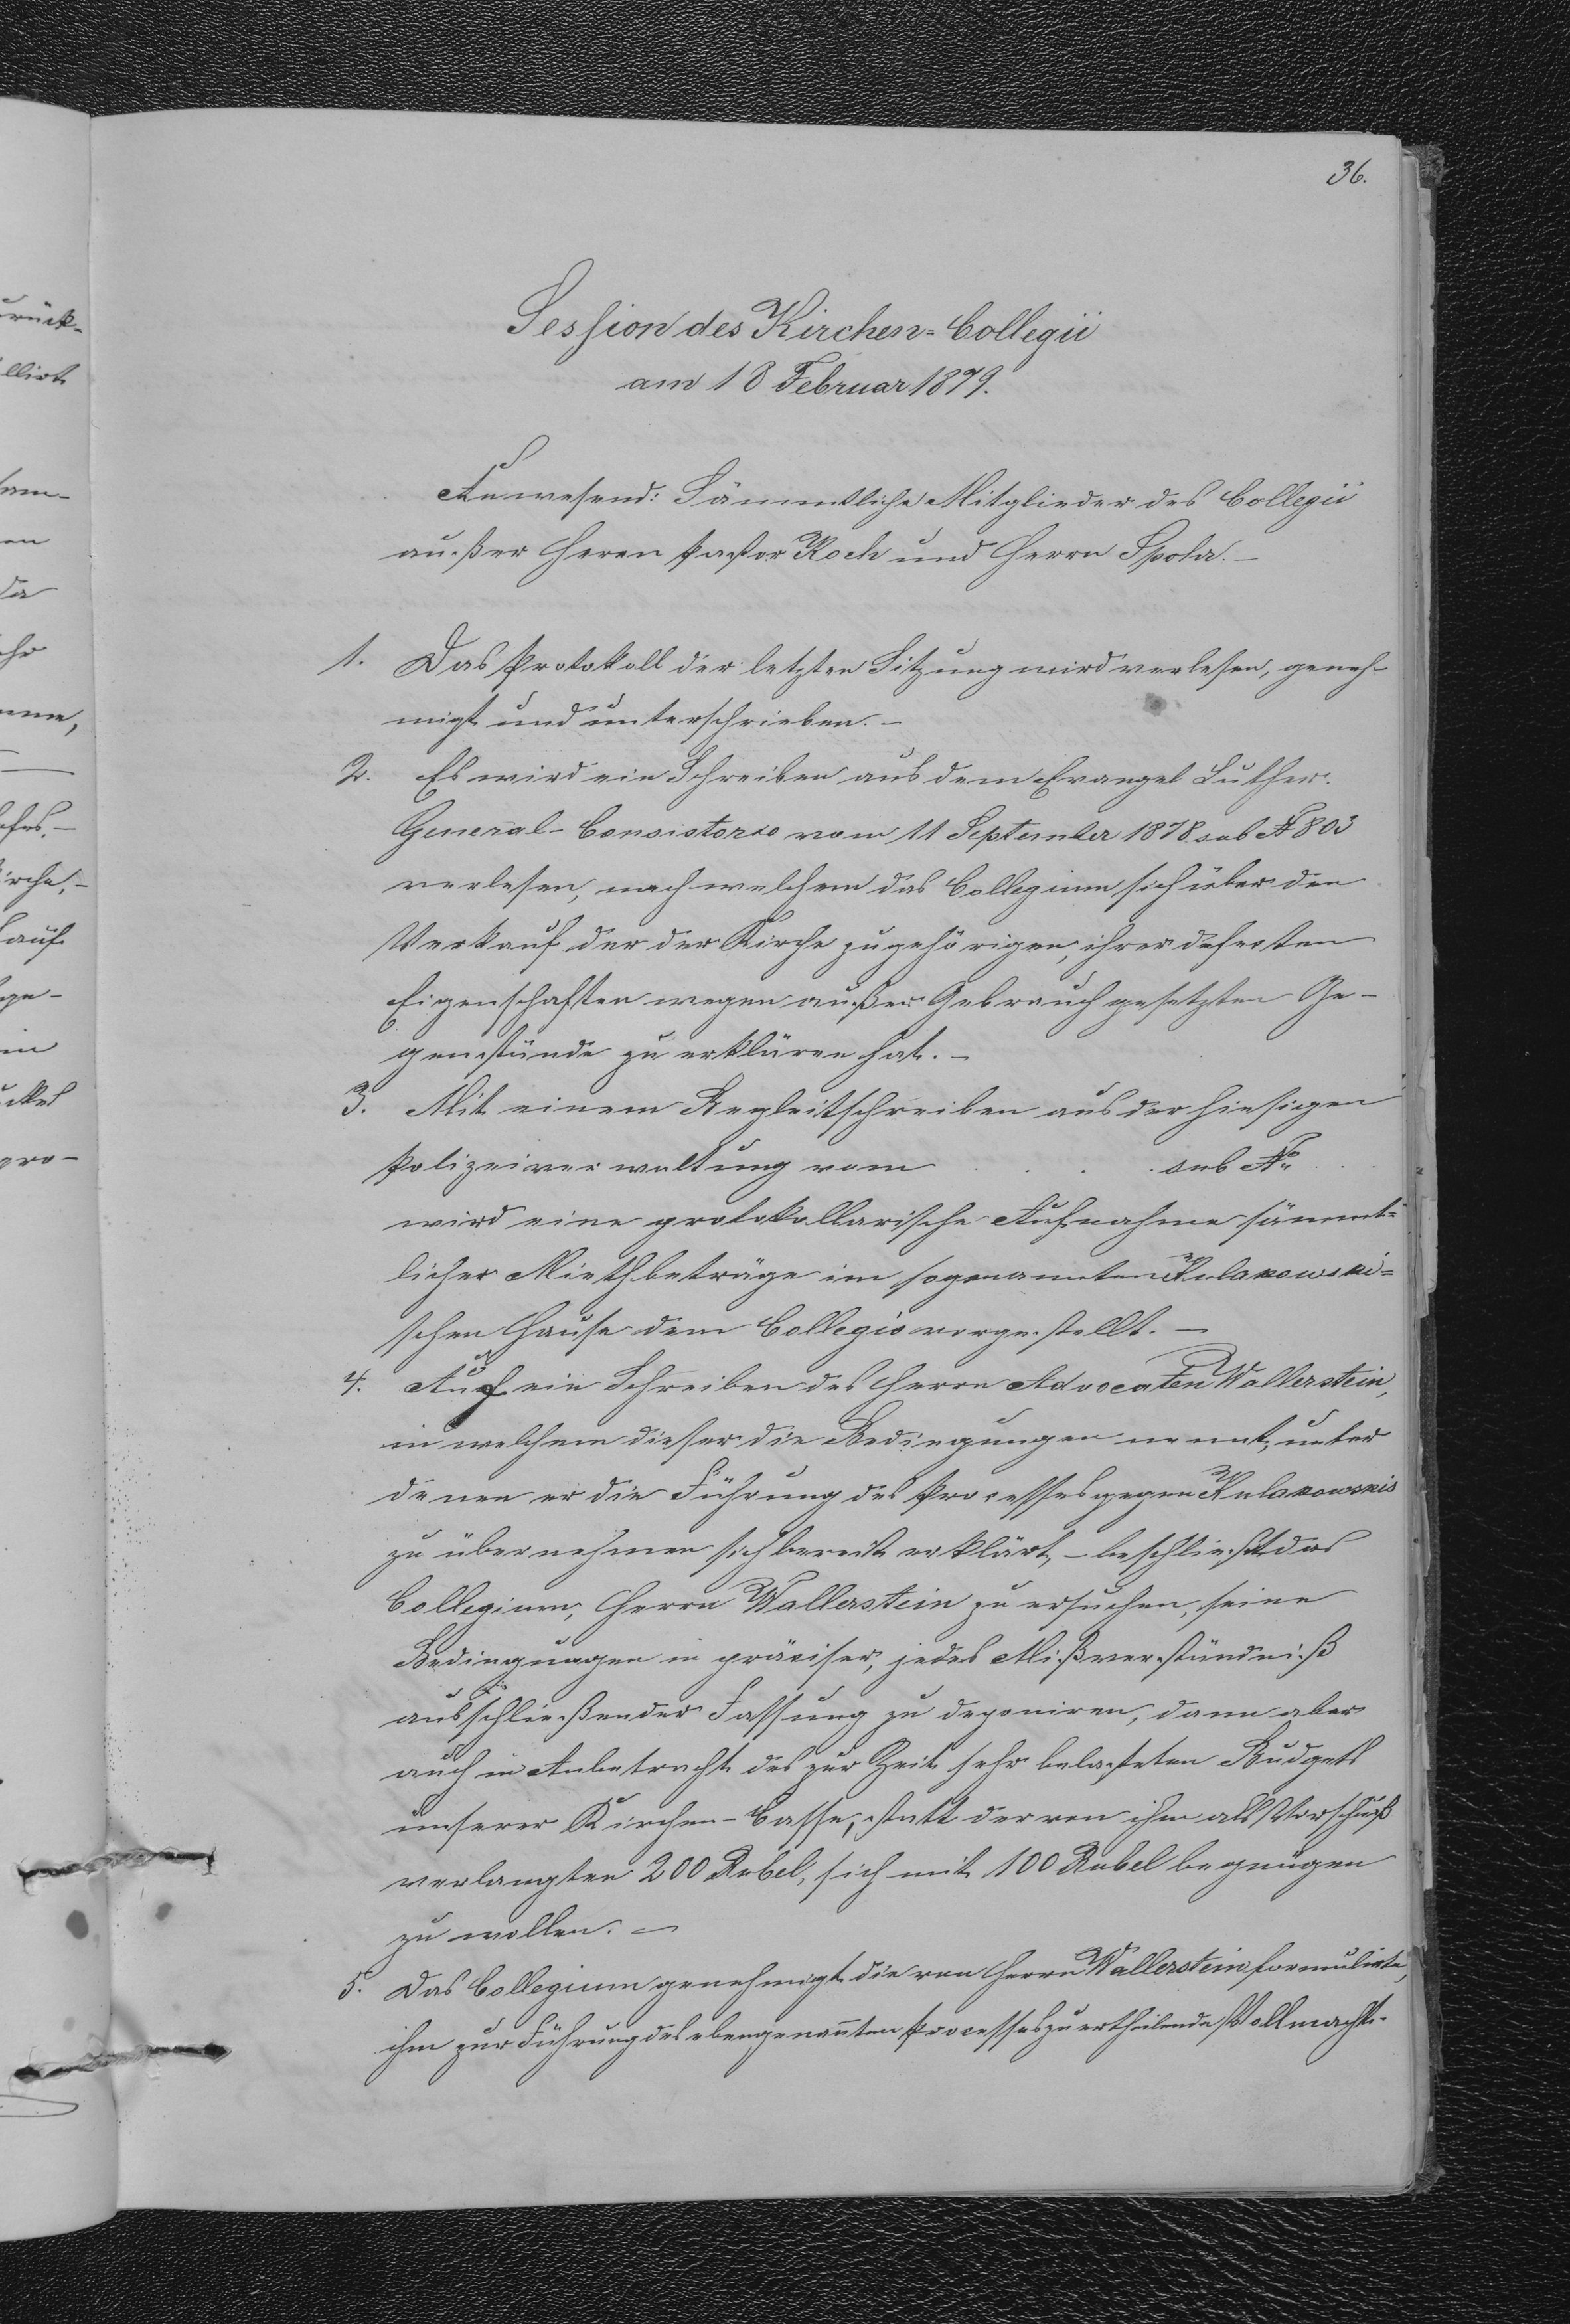 36.
Session des Kirchen-Collegii
am 18 Februar 1879.
Anwesend: Sämmtliche Mitglieder des Collegii
außer Herrn Pastor Koch und Herrn Spola. –
1. Das Protokoll der letzten Sitzung wird verlesen, geneh-
migt und unterschrieben. –
2. Es wird ein Schreiben aus dem Evangel Luther.
General-Consistorio vom 11 September 1878 sub № 803
verlesen, nach welchem das Collegium sich über den
Verkauf der der Kirche zugehörigen, ihrer defecten
Eigenschaften wegen außer Gebrauch gesetzten Ge-
genstände zu erklären hat. –
3. Mit einem Begleitschreiben aus der hiesigen
Polizeiverwaltung vom . . . sub № . .
wird eine protokollarische Aufnahme sämmt-
licher Miethbeträge im sogenannten Kulakowski-
schen Hause dem Collegio vorgestellt. –
4. Auf ein Schreiben des Herrn Advocaten Wallerstein,
in welchem dieser die Bedingungen nennt, unter
denen er die Führung des Processes gegen Kulakowskis
zu übernehmen sich bereit erklärt, – beschließt das
Collegium, Herrn Wallerstein zu ersuchen, seine
Bedingungen in präciser, jedes Mißverständniß
ausschließender Fassung zu deponiren, dann aber
auch in Anbetracht des zur Zeit sehr belasteten Budgets
unserer Kirchen-Casse, statt der von ihm als Vorschuß
verlangten 200 Rubel, sich mit 100 Rubel begnügen
zu wollen. –
5. Das Collegium genehmigt die von Herrn Wallerstein formulirte,
ihm zur Führung des ebengenannten Processes zu ertheilende Vollmacht.